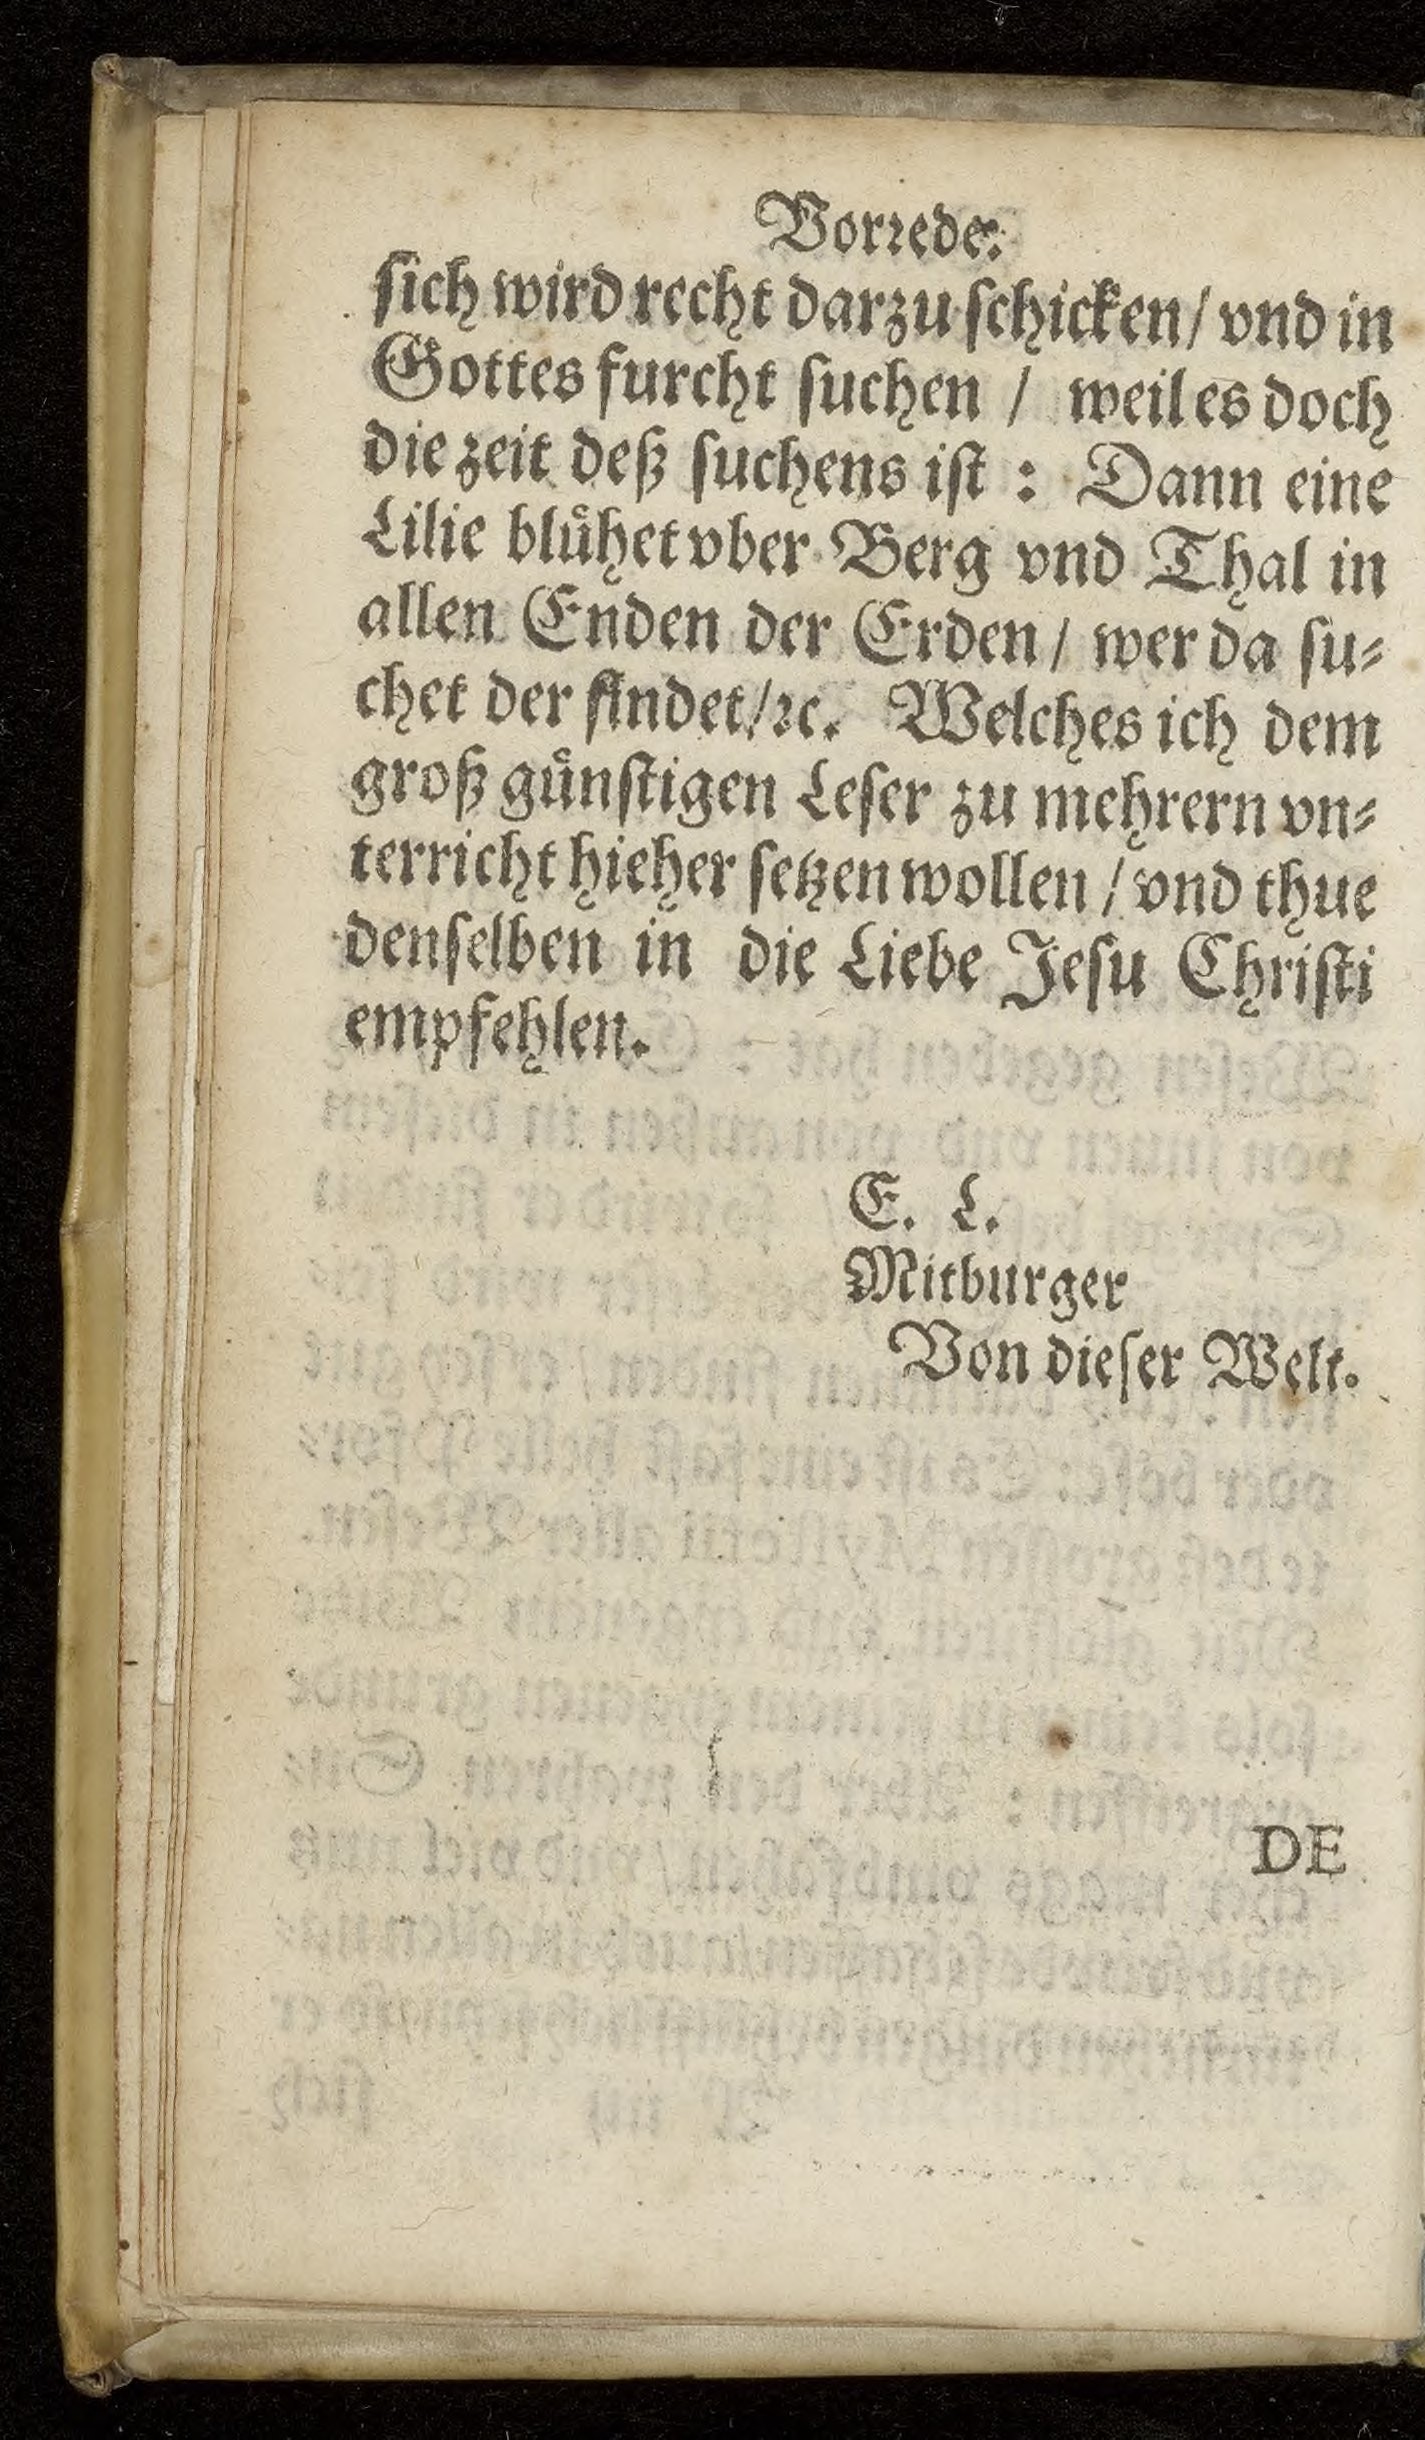 Vorrede.
ſich wird recht darzu ſchicken/ vnd in
Gottes furcht ſuchen / weil es doch
die zeit deß ſuchens iſt : Dann eine
Lilie bluͤhet vber Berg vnd Thal in
allen Enden der Erden/ wer da ſu⸗
chet der findet/ꝛc. Welches ich dem
groß guͤnſtigen Leſer zu mehrern vn⸗
terricht hieher ſetzen wollen / vnd thue
denſelben in die Liebe Jeſu Chriſti
empfehlen.
E. L.
Mitburger
Von dieſer Welt.
DE